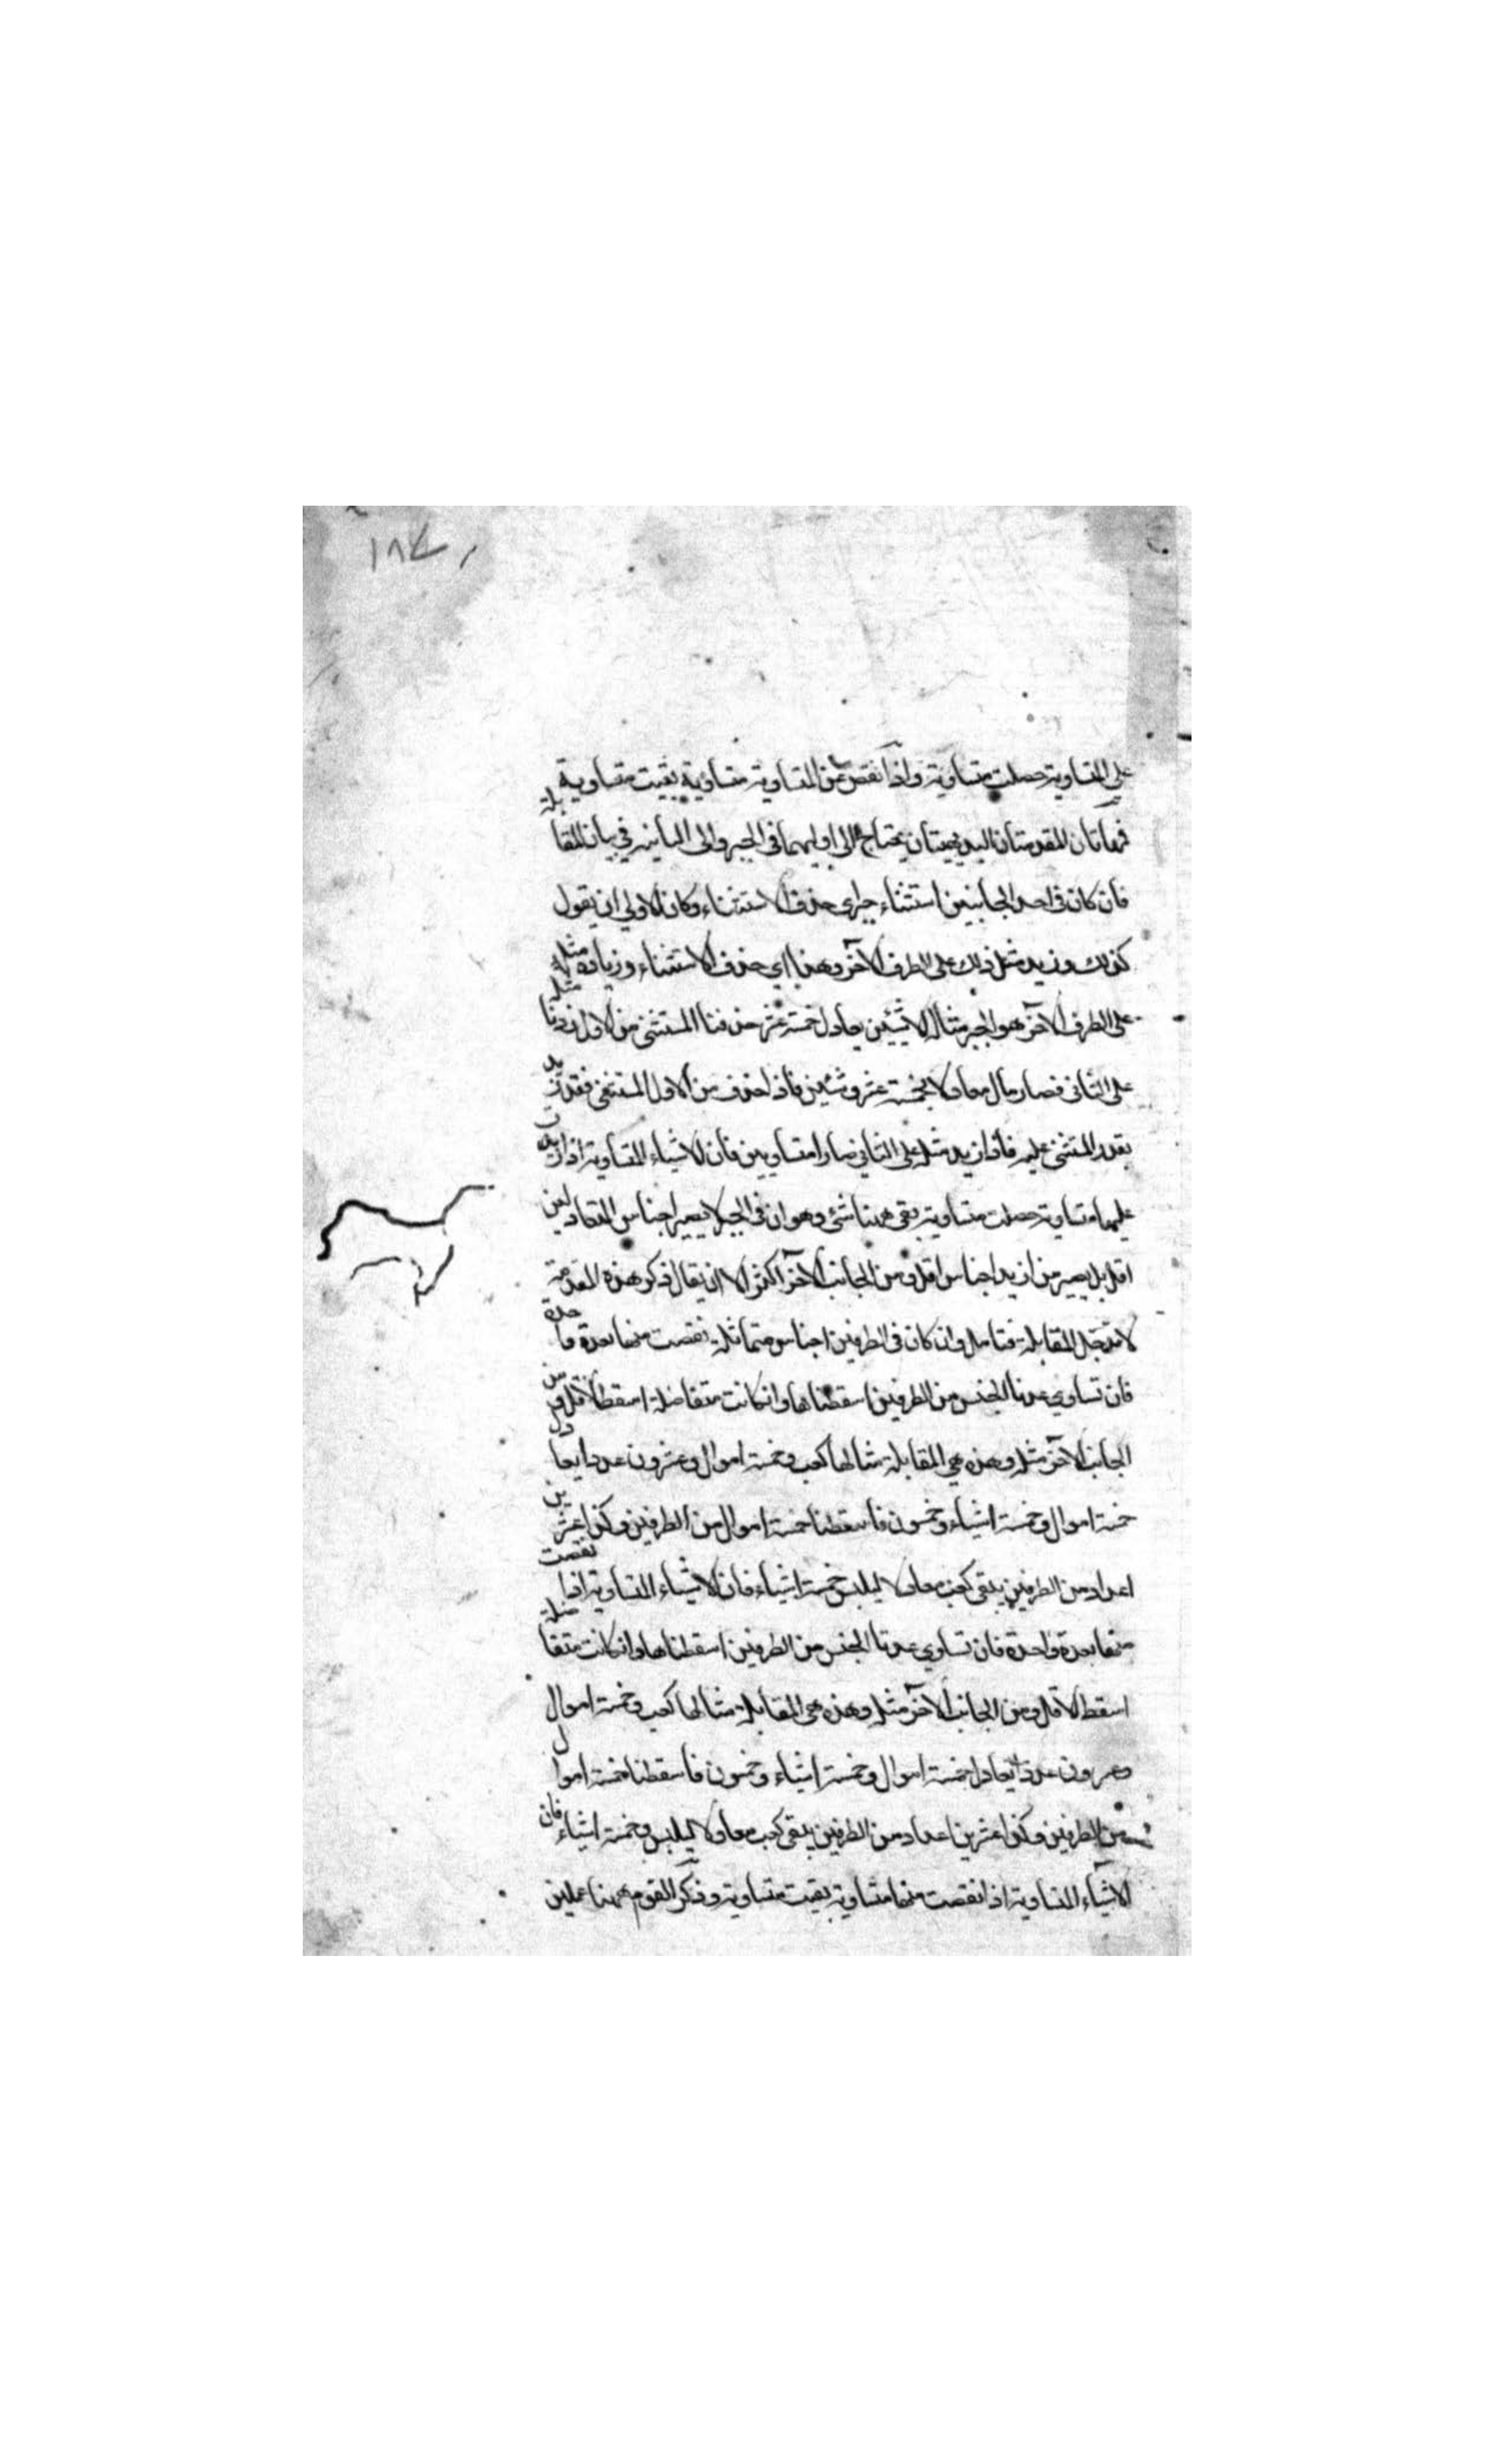 ١٨٧
على المتساوية حصلت متساوية واذا نقص عن المتساوية متساوية بقيت متساوية
فهاتان المقدمتان البديهيتان يحتاج الى اوليهما في الجبر والى الثانية في بيان المقابلة
فان كان في احد الجانبين استثناء جرى حذف الاستثناء وكان الاولى ان يقول
كذلك ونزيد مثل ذلك على الطرف الآخر وهذا اي حذف الاستثناء وزيادة مثله
على الطرف الآخر هو الجبر مثاله الا شيئين يعادل خمسة عشر حذفنا المستثنى من الاول زدنا مثله
على الثاني فصار مال معادلا بخمسة عشر وشيئين فاذا حذف من الاول المستثنى فقد زيد
بقدر المستثنى عليه فاذا زيد مثله على الثاني صارا متساويين فان الاشياء المتساوية اذا زيدت
عليها متساوية حصلت متساوية بقي ههنا شئ وهو ان في الجبر لا يصير اجناس المتعادلين
اقل بل يصير من ازيد اجناس اقل ومن الجانب الآخر اكثر الا ان يقال ذكر هذه المقدمة
المقابلة فتامل وان كان في الطرفين اجناس متماثلة نقصت منها بعدة واحدة
فان تساوي عدتا الجنس من الطرفين اسقطناها وان كانت متفاضلة اسقط الاقل ومن
الجانب الآخر مثله وهذه هي المقابلة مثالها كعب وخمسة اموال وعشرون عددا يعادل
خمسة اموال وخمسة اشياء وخمسون فاسقطنا خمسة اموال من الطرفين وكذا عشرين
اعداد من الطرفين يبقى كعب معادلا لثلثين خمسة اشياء فان الاشياء المتساوية اذا نقصت
منها بعدة واحدة فان تساوي عدتا الجنس من الطرفين اسقطناها وان كانت متفاضلة
اسقط الاقل ومن الجانب الآخر مثله وهذه هي المقابلة مثالها كعب وخمسة اموال
وعشرون عددا يعادل خمسة اموال وخمسة اشياء وخمسون فاسقطنا خمسة اموال
من الطرفين وكذا عشرين اعداد من الطرفين يبقى كعب معادلا لثلثين وخمسة اشياء فان
الاشياء المتساوية اذا نقصت منها متساوية بقيت متساوية وذكر القوم ههنا عملين